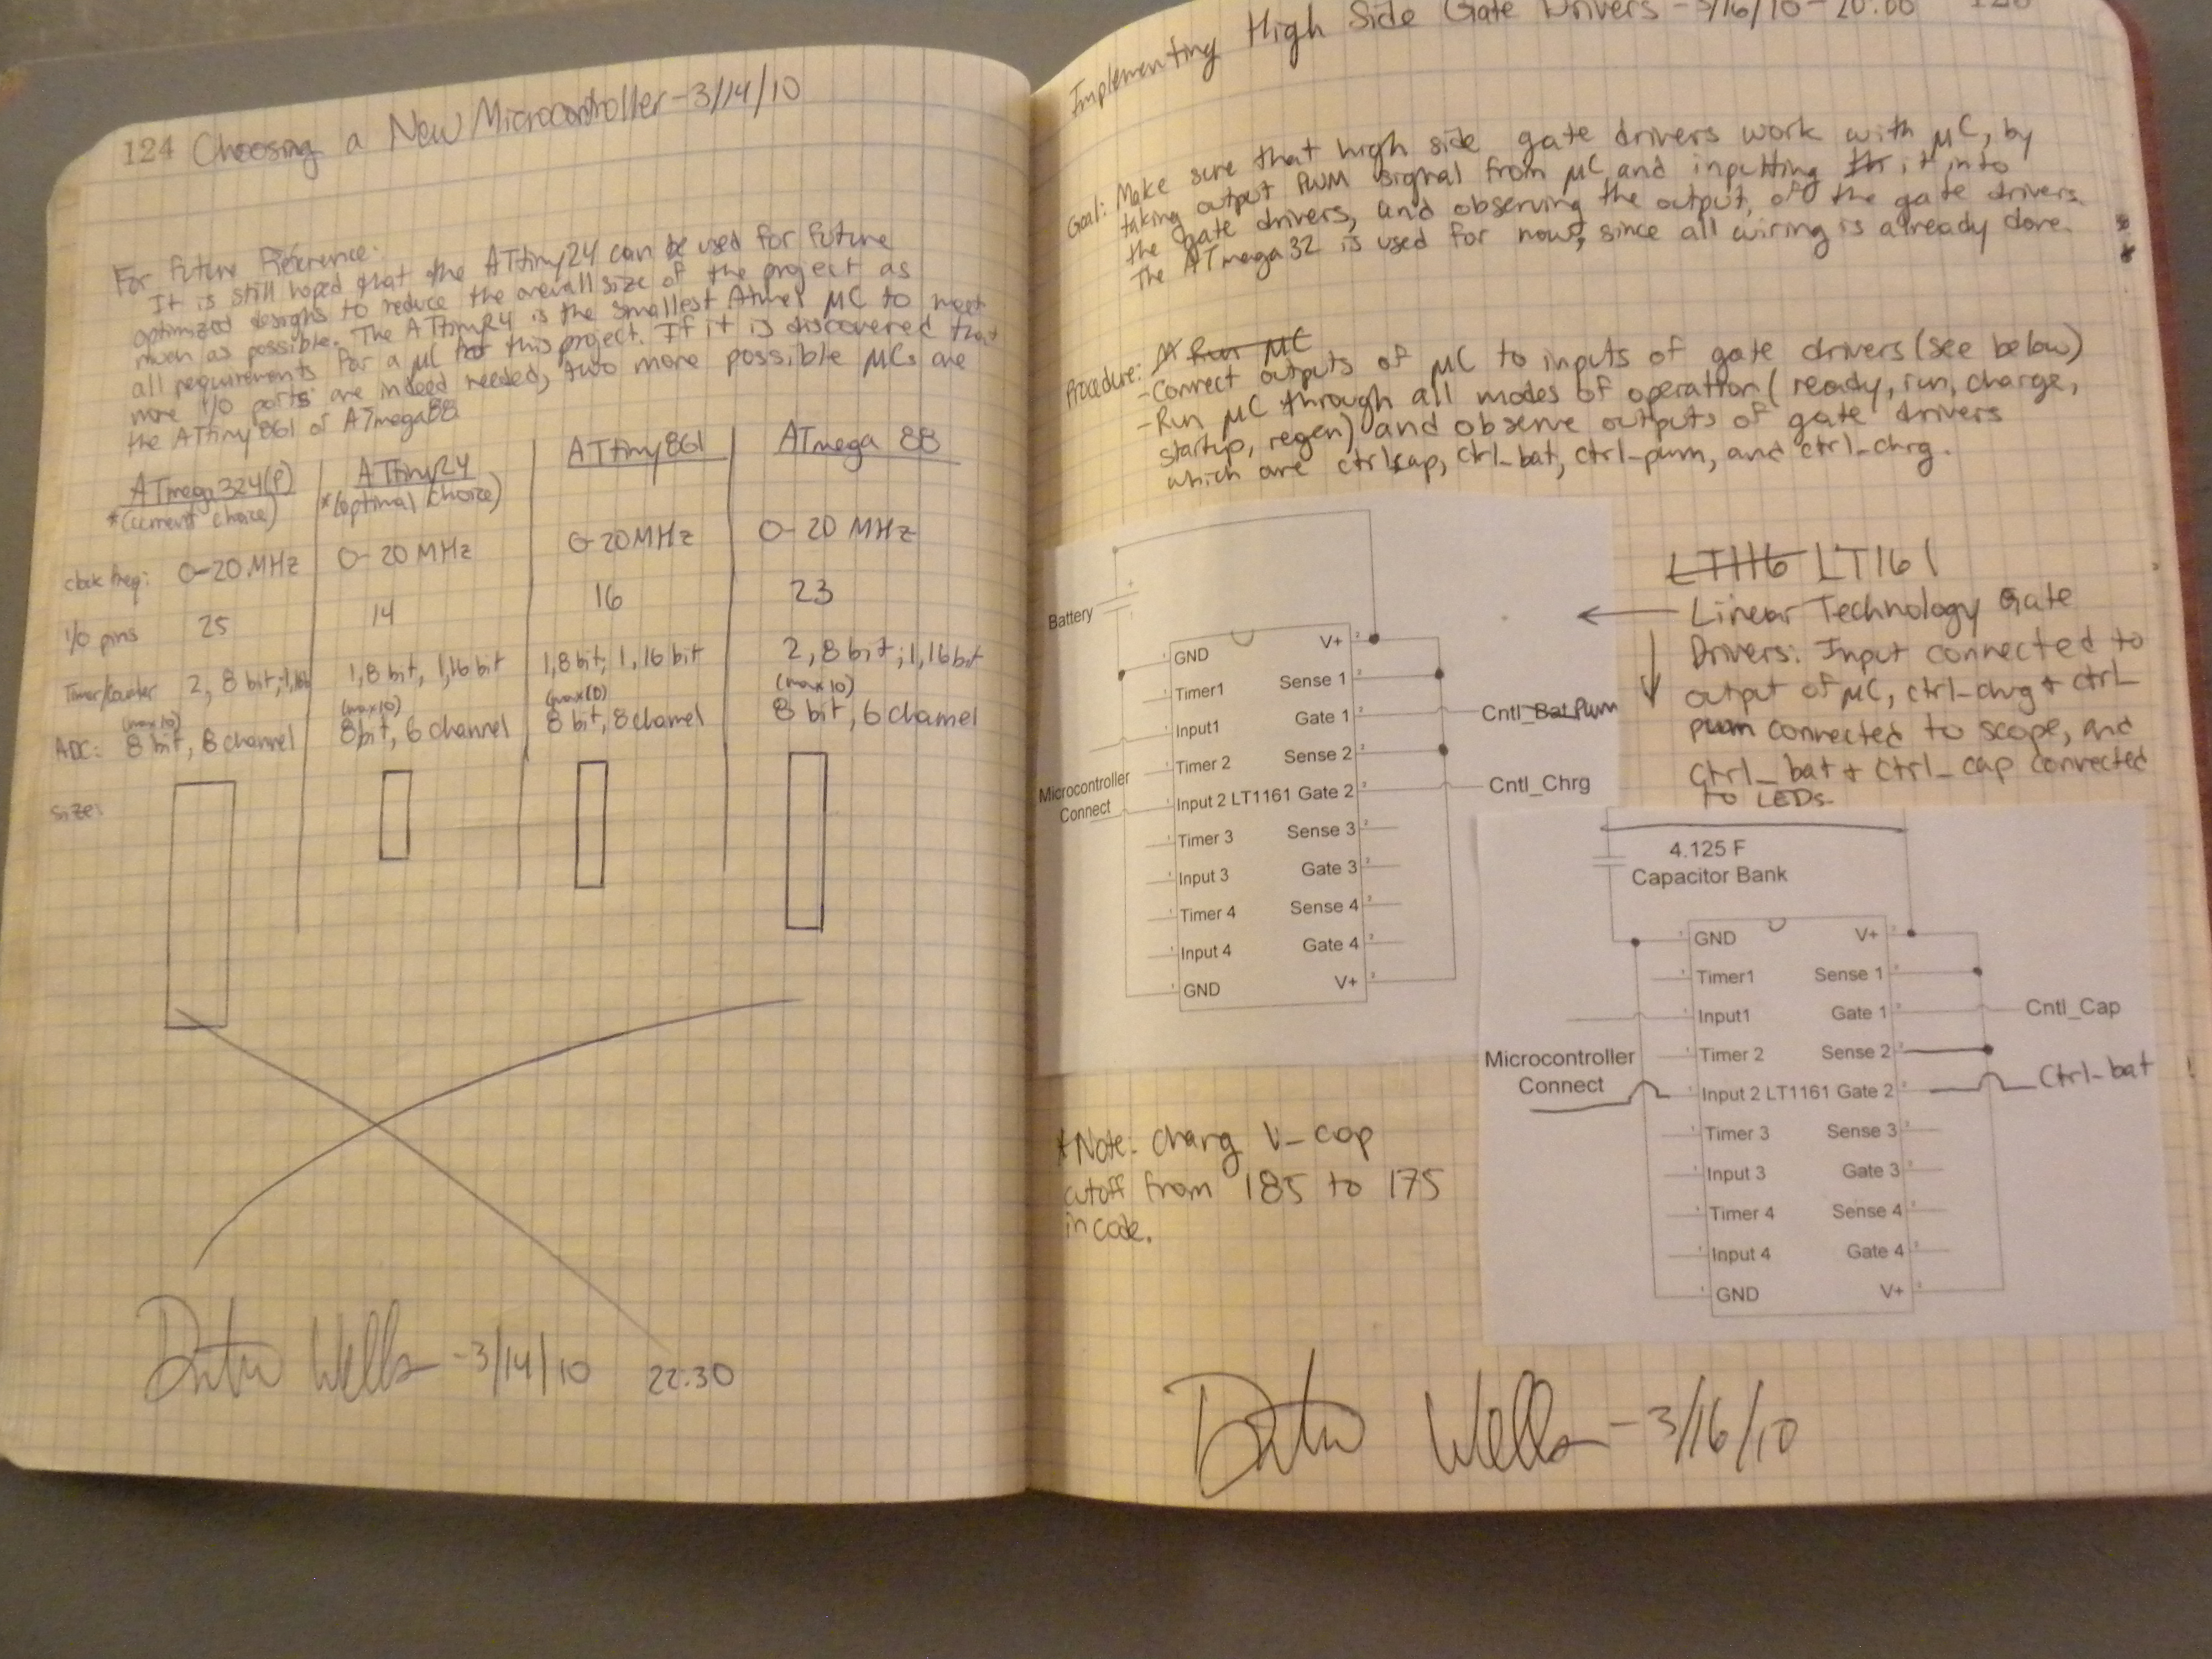 124 Choosing a New Microcontroller-3/14/10
For Future Reference:
It is still hoped that the ATtiny24 can be used for future
optimized designs to reduce the overall size of the project as
much as possible. The ATtiny24 is the smallest Atmel μC to meet
all requirements for a μC for this project. If it is discovered that
more I/O ports are indeed needed, two more possible μCs are
the ATtiny861 or ATmega88
ATmega324(P) ATtiny24 ATtiny861 ATmega 88
*(current choice) *(optimal choice)
clock freq: 0-20MHz 0-20 MHz 0-20MHz 0-20 MHz
I/O pins 25 14 16 23
Timer/Counter 2, 8 bit; 1,16b 1,8 bit, 1,16 bit 1,8 bit; 1,16 bit 2, 8 bit; 1,16bit
(max10) (max10) (max10) (max10)
ADC: 8 bit, 8 channel 8bit, 6 channel 8 bit, 8 channel 8 bit, 6 channel
Size:
Wells -3/14/10 22:30
Implementing High Side Gate Drivers - 3/16/10 - 20:00
Goal: Make sure that high side gate drivers work with μC, by
taking output PWM signal from μC and inputting it into
the gate drivers, and observing the output, of the gate drivers.
The ATmega32 is used for now, since all wiring is already done.
Procedure: Run μC
-Connect outputs of μC to inputs of gate drivers (see below)
-Run μC through all modes of operation (ready, run, charge,
startup, regen) and observe outputs of gate drivers
which are ctrl_cap, ctrl_bat, ctrl_pwm, and ctrl_chrg.
LT1116 LT161
Linear Technology Gate
Drivers: Input connected to
output of μC, ctrl_chrg + ctrl_
pwm connected to scope, and
ctrl_bat + ctrl_cap connected
to LEDs.
Battery
GND V+
Timer1 Sense 1
Input1 Gate 1 Cntl_Bat Pwm
Timer 2 Sense 2
Microcontroller
Connect
Input 2 LT1161 Gate 2 Cntl_Chrg
Timer 3 Sense 3
Input 3 Gate 3
Timer 4 Sense 4
Input 4 Gate 4
GND V+
4.125 F
Capacitor Bank
GND V+
Timer1 Sense 1
Input1 Gate 1 Cntl_Cap
Timer 2 Sense 2
Microcontroller
Connect
Input 2 LT1161 Gate 2 Ctrl-bat
Timer 3 Sense 3
Input 3 Gate 3
Timer 4 Sense 4
Input 4 Gate 4
GND V+
*Note: chang V_cap
cutoff from 185 to 175
in code.
Wells -3/16/10